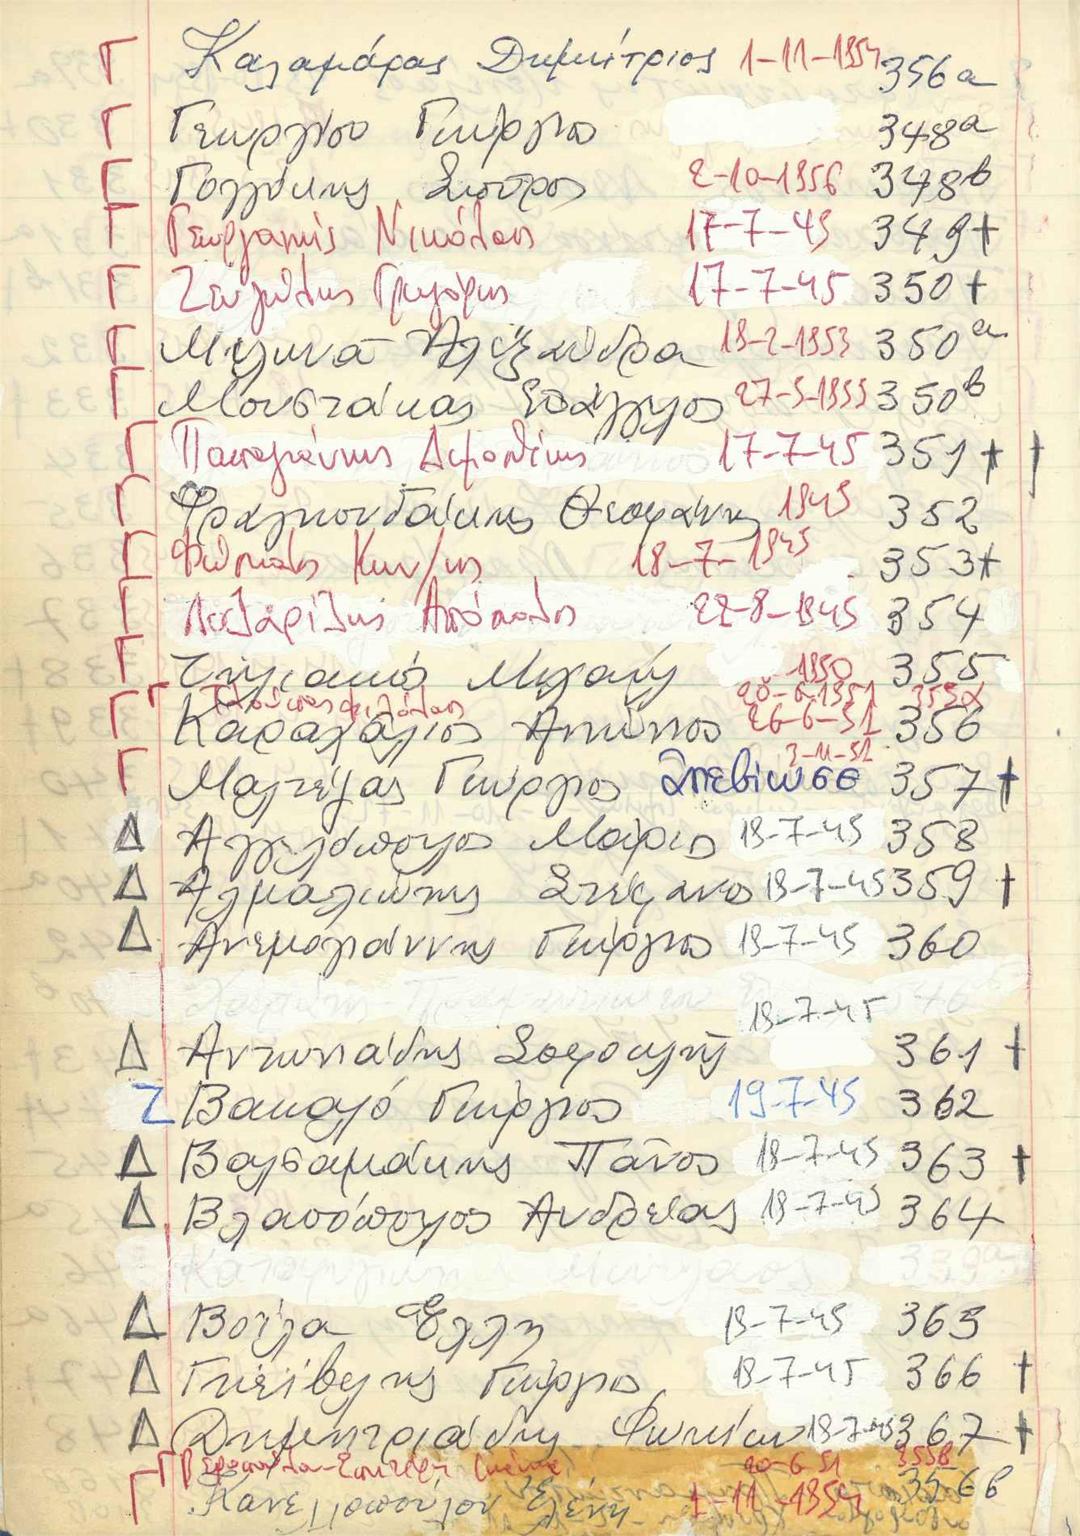 Γ Καλαμάρας Δημήτριος 1-11-1954 356a
Γ Γεωργίου Γεώργιος 348a
Γ Γολγάκης Σπύρος 2-10-1956 348b
Γ Γεωργαντής Νικόλαος 17-7-45 349+
Γ Ζευγώλης Γρηγόρης 17-7-45 350+
Γ Μυλωνά Αλεξάνδρα 18-2-1953 350a
Γ Μουστάκας Ευάγγελος 27-5-1955 350b
Γ Παπαγιάννης Δημοσθένης 17-7-45 351+ †
Γ Φραγκουδάκης Θεοφάνης 1945 352
Γ Φώσκολος Κων/νος 18-7-1945 353+
Γ Λαζαρίδης Απόστολος 22-8-1945 354
Γ Μιχαήλ 1950 355
Γ 20-6-1951 355α
Γ Καραχάλιος Αντώνιος 26-6-51 356
3-11-51
Γ Μαλτέζας Γεώργιος απεβίωσε 357†
Δ Αγγελόπουλος Μάριος 18-7-45 358
Δ Αλμαλιώτης Στέφανος 18-7-45 359 †
Δ Ανεμογιάννης Γεώργιος 18-7-45 360
18-7-45
Δ Αντωνιάδης Σοφοκλής 361 †
Ζ Βακαλό Γεώργιος 19-7-45 362
Δ Βαλσαμάκης Πάνος 18-7-45 363 †
Δ Βλασσόπουλος Ανδρέας 18-7-45 364
Δ Βοΐλα Έλλη 18-7-45 365
Δ Γκεϊβέλης Γεώργιος 18-7-45 366 †
Δ Δημητριάδης Φωκίων 18-7-45 367 †
Γ 20-6-51 355β
Γ Κανελλοπούλου Ελένη 1-11-1954 356b